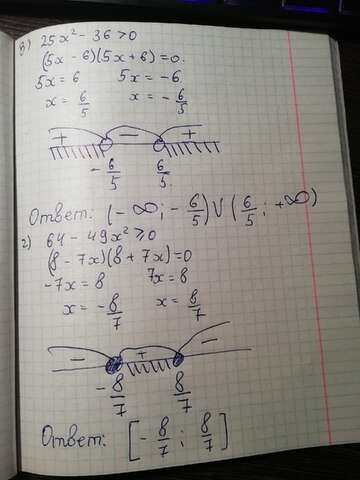 в) 25x² - 36 > 0
(5x - 6)(5x + 6) = 0.
5x = 6 5x = -6
x = 6/5 x = - 6/5
+ - +
- 6/5 6/5
Ответ: (-∞; - 6/5) ∪ (6/5; +∞)
г) 64 - 49x² ≥ 0
(8 - 7x)(8 + 7x) = 0
-7x = 8 7x = 8
x = - 8/7 x = 8/7
- + -
- 8/7 8/7
Ответ: [- 8/7; 8/7]